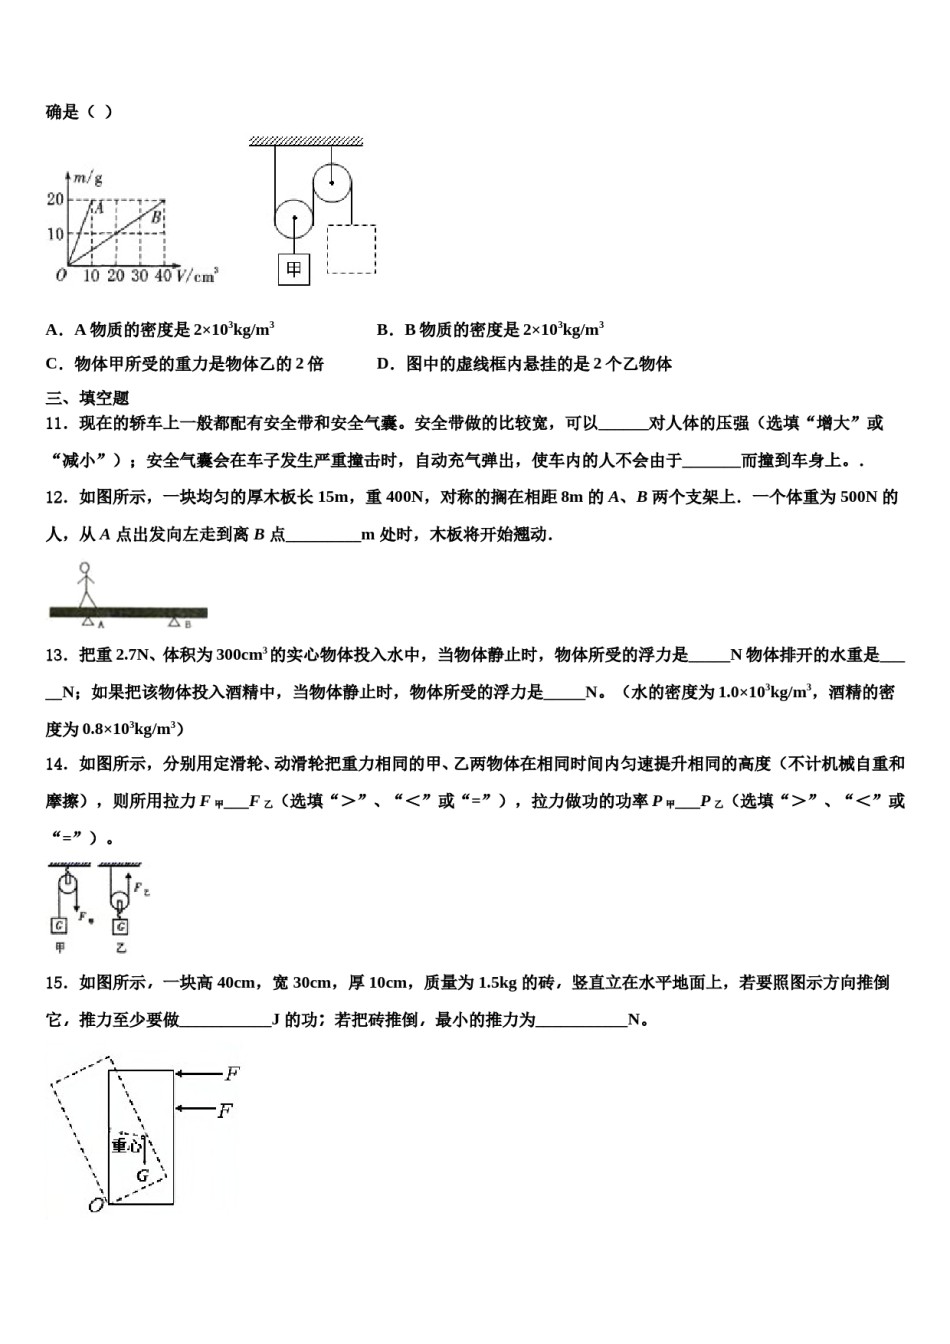 确是（ ）
m/g
20
10
A
B
O 10 20 30 40 V/cm³
甲
A．A 物质的密度是 2×10³kg/m³ B．B 物质的密度是 2×10³kg/m³
C．物体甲所受的重力是物体乙的 2 倍 D．图中的虚线框内悬挂的是 2 个乙物体
三、填空题
11．现在的轿车上一般都配有安全带和安全气囊。安全带做的比较宽，可以______对人体的压强（选填“增大”或
“减小”）；安全气囊会在车子发生严重撞击时，自动充气弹出，使车内的人不会由于_______而撞到车身上。.
12．如图所示，一块均匀的厚木板长 15m，重 400N，对称的搁在相距 8m 的 A、B 两个支架上．一个体重为 500N 的
人，从 A 点出发向左走到离 B 点_________m 处时，木板将开始翘动．
A B
13．把重 2.7N、体积为 300cm³的实心物体投入水中，当物体静止时，物体所受的浮力是_____N 物体排开的水重是___
__N；如果把该物体投入酒精中，当物体静止时，物体所受的浮力是_____N。（水的密度为 1.0×10³kg/m³，酒精的密
度为 0.8×10³kg/m³）
14．如图所示，分别用定滑轮、动滑轮把重力相同的甲、乙两物体在相同时间内匀速提升相同的高度（不计机械自重和
摩擦），则所用拉力 F 甲___F 乙（选填“＞”、“＜”或“=”），拉力做功的功率 P 甲___P 乙（选填“＞”、“＜”或
“=”）。
F乙
F甲
G G
甲 乙
15．如图所示，一块高 40cm，宽 30cm，厚 10cm，质量为 1.5kg 的砖，竖直立在水平地面上，若要照图示方向推倒
它，推力至少要做___________J 的功；若把砖推倒，最小的推力为___________N。
F
F
重心
G
O